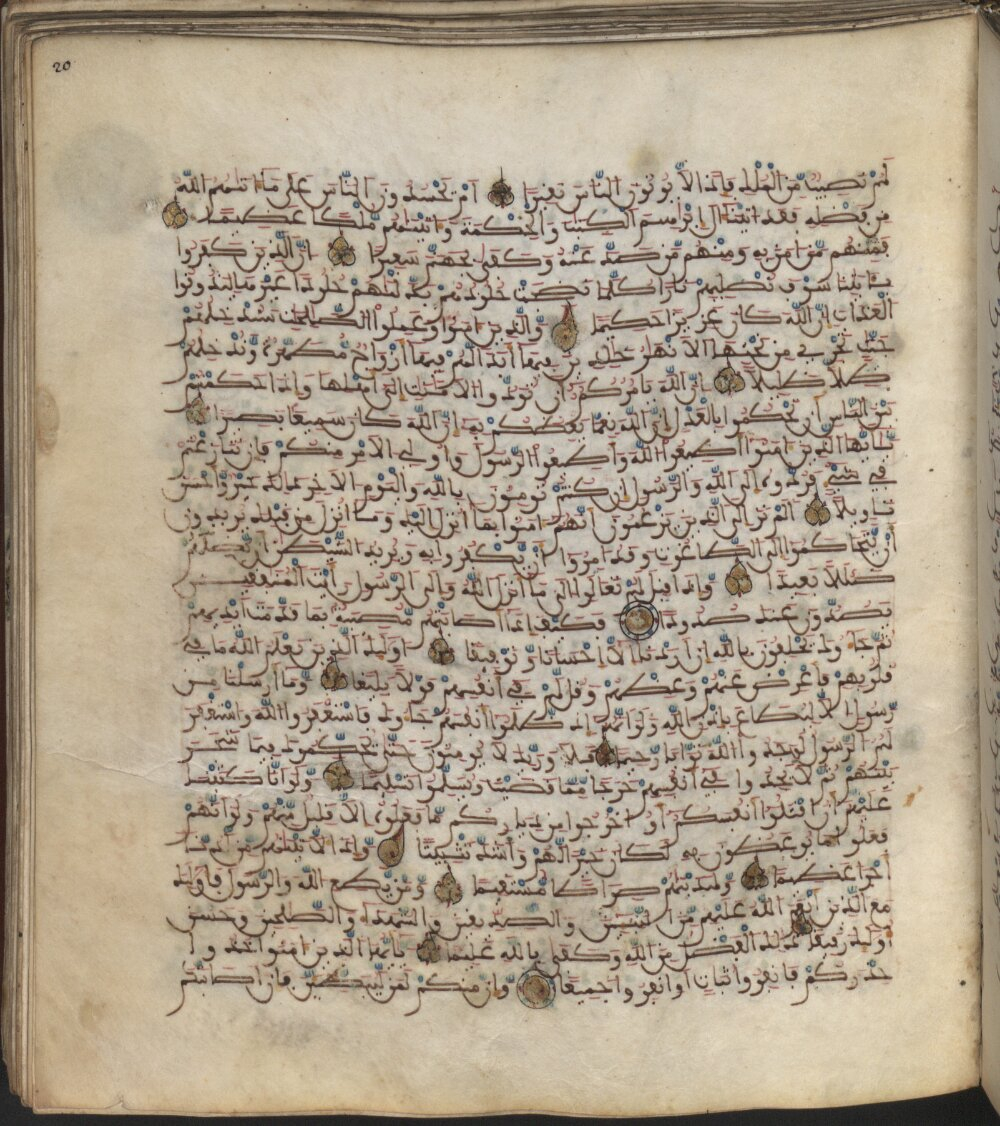 لهم نصيب من الملك فإذا لا يوتون الناس نقيرا ام يحسدون الناس على ما اتيهم الله
من فضله فقد اتينا ال ابرهيم الكتب والحكمة واتينهم ملكا عظيما
فمنهم من امن به ومنهم من صد عنه وكفى بجهنم سعيرا ان الذين كفروا
بايتنا سوف نصليهم نارا كلما نضجت جلودهم بدلنهم جلودا غيرها ليذوقوا
العذاب ان الله كان عزيزا حكيما والذين امنوا وعملوا الصلحت سندخلهم
جنت تجري من تحتها الانهر خلدين فيها ابدا لهم فيها ازواج مطهرة وندخلهم
ظلا ظليلا ان الله يامركم ان تودوا الامنت الى اهلها واذا حكمتم
بين الناس ان تحكموا بالعدل ان الله نعما يعظكم به ان الله كان سميعا بصيرا
يايها الذين امنوا اطيعوا الله واطيعوا الرسول واولي الامر منكم فان تنزعتم
في شيء فردوه الى الله والرسول ان كنتم تومنون بالله واليوم الاخر ذلك خير واحسن
تاويلا الم تر الى الذين يزعمون انهم امنوا بما انزل اليك وما انزل من قبلك يريدون
ان يتحاكموا الى الطاغوت وقد امروا ان يكفروا به ويريد الشيطن ان يضلهم
ضللا بعيدا واذا قيل لهم تعالوا الى ما انزل الله والى الرسول رايت المنفقين
يصدون عنك صدودا فكيف اذا اصابتهم مصيبة بما قدمت ايديهم
ثم جاءوك يحلفون بالله ان اردنا الا احسانا وتوفيقا اوليك الذين يعلم الله ما في
قلوبهم فاعرض عنهم وعظهم وقل لهم في انفسهم قولا بليغا وما ارسلنا من
رسول الا ليطاع باذن الله ولو انهم اذ ظلموا انفسهم جاءوك فاستغفروا الله واستغفر
لهم الرسول لوجدوا الله توابا رحيما فلا وربك لا يومنون حتى يحكموك فيما شجر
بينهم ثم لا يجدوا في انفسهم حرجا مما قضيت ويسلموا تسليما ولو انا كتبنا
عليهم ان اقتلوا انفسكم او اخرجوا من ديركم ما فعلوه الا قليل منهم ولو انهم
فعلوا ما يوعظون به لكان خيرا لهم واشد تثبيتا واذا لاتينهم من لدنا
اجرا عظيما ولهدينهم صراطا مستقيما ومن يطع الله والرسول فاوليك
مع الذين انعم الله عليهم من النبيين والصديقين والشهداء والصلحين وحسن
اوليك رفيقا ذلك الفضل من الله وكفى بالله عليما يايها الذين امنوا خذوا
حذركم فانفروا ثبات او انفروا جميعا وان منكم لمن ليبطين فان اصابتكم
20